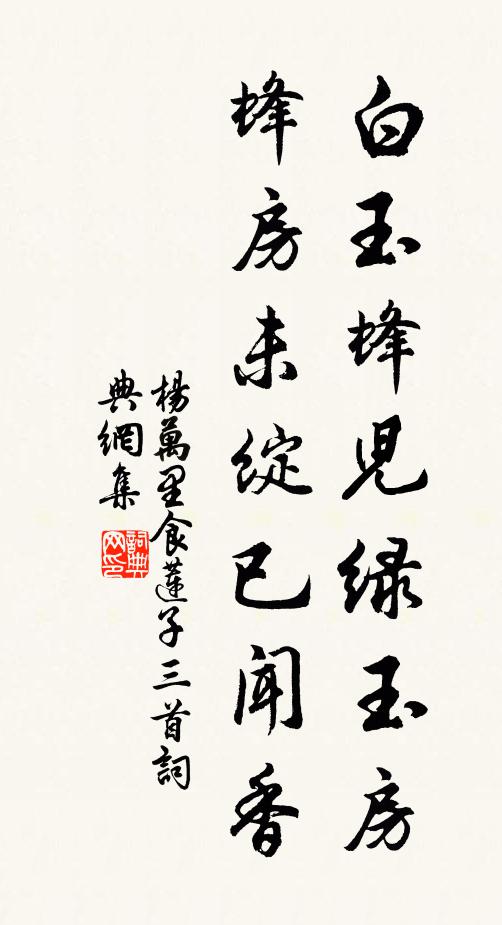 白玉蜂児緑玉房
蜂房未綻已聞香
楊萬里食蓮子三首詞
典網集
詞典
网印